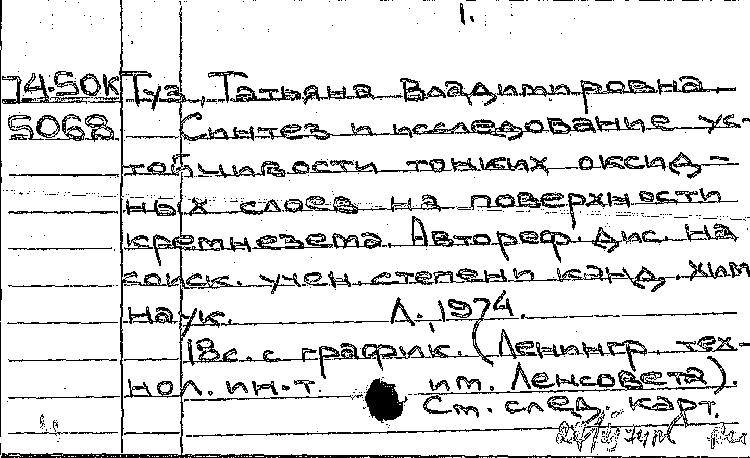 1.
74-50к Туз, Татьяна Владимировна.
5068 Синтез и исследование ус-
тойчивости тонких оксид-
ных слоев на поверхности
кремнезема. Автореф. дис. на
соиск. учен. степени канд. хим
наук. Л., 1974.
18с. с график. (Ленингр. тех-
нол. ин-т. им. Ленсовета).
См. след. карт.